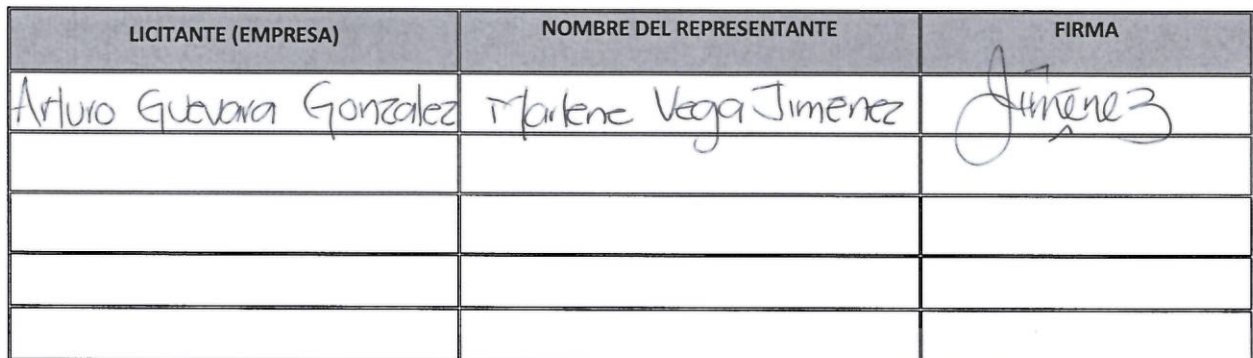 LICITANTE (EMPRESA) NOMBRE DEL REPRESENTANTE FIRMA
Arturo Guevara Gonzalez Marlene Vega Jimenez Jimenez